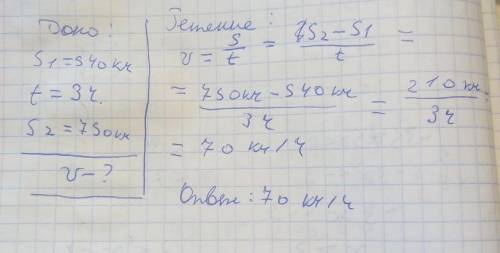 Дано:
S₁ = 540 км
t = 3 ч.
S₂ = 750 км
v - ?
Решение:
v = S/t = (S₂ - S₁)/t =
= (750 км - 540 км)/3 ч = 210 км/3 ч
= 70 км/ч
Ответ: 70 км/ч